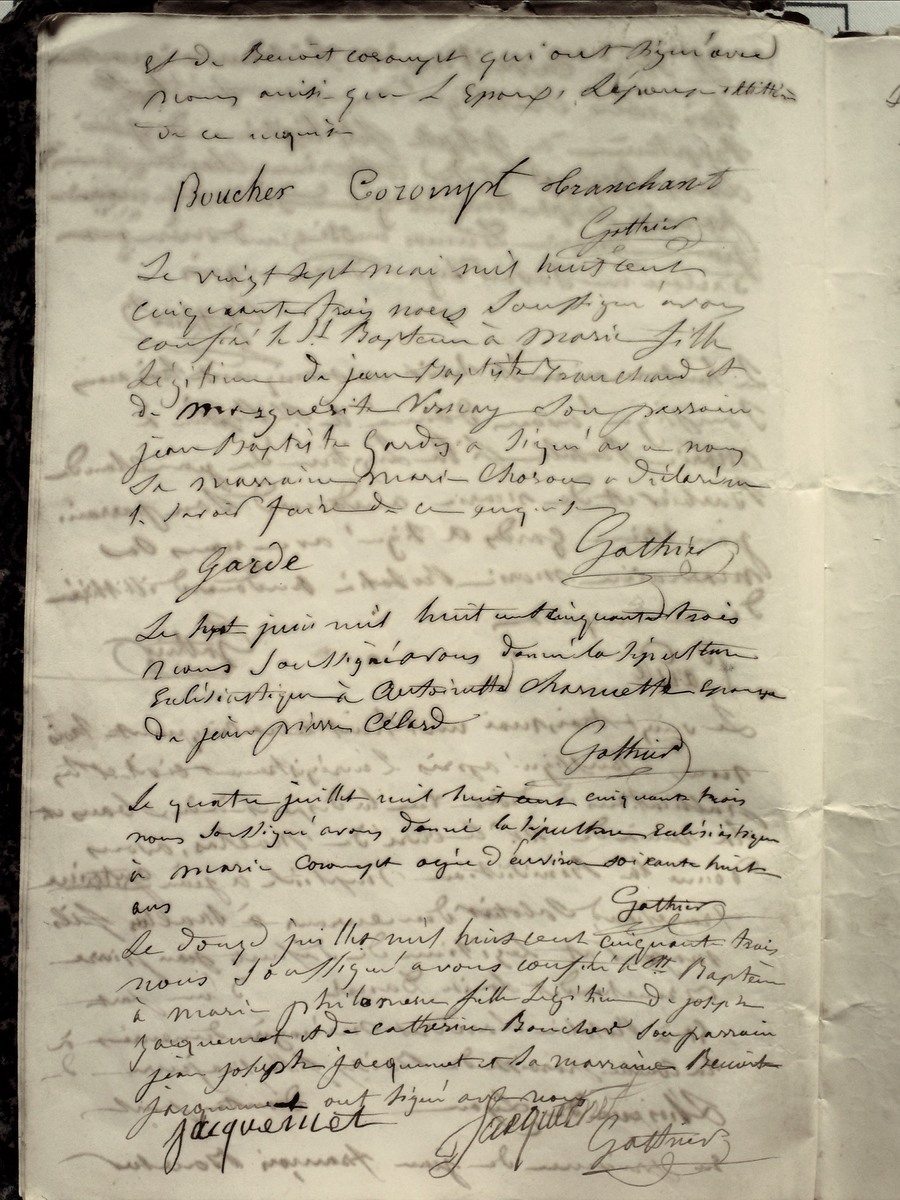 et de Benoit corompt qui ont signé avec
nous ainsi que L Epoux, L'épouse illitérée
de ce requise
Boucher Corompt tranchant
Gathier
Le vingt sept mai mil huit cent
cinquante trois nous soussigné avons
conféré le St Baptême à marie fille
légitime de jean Baptiste Tranchand et
de marguerite son parrain
jean Baptiste Garde a signé avec nous
sa marraine marie a déclaré ne
le savoir faire de ce requise
Garde Gathier
Le sept juin mil huit cent cinquante trois
nous soussigné avons donné la sépulture
Eclésiastique à Antoinette charnette Epouse
de jean pierre Célard
Gathier
Le quatre juillet mil huit cent cinquante trois
nous soussigné avons donné la sépulture Eclésiastique
à marie corompt agée d'environ soixante huit
ans
Gathier
Le douze juillet mil huit cent cinquante trois
nous soussigné avons conféré le St Baptême
à marie philomene fille légitime de joseph
jacquemet et de catherine Boucher son parrain
jean joseph jacquemet et sa marraine Benoite
jacquemet ont signé avec nous
jacquemet Jacquemet
Gathier